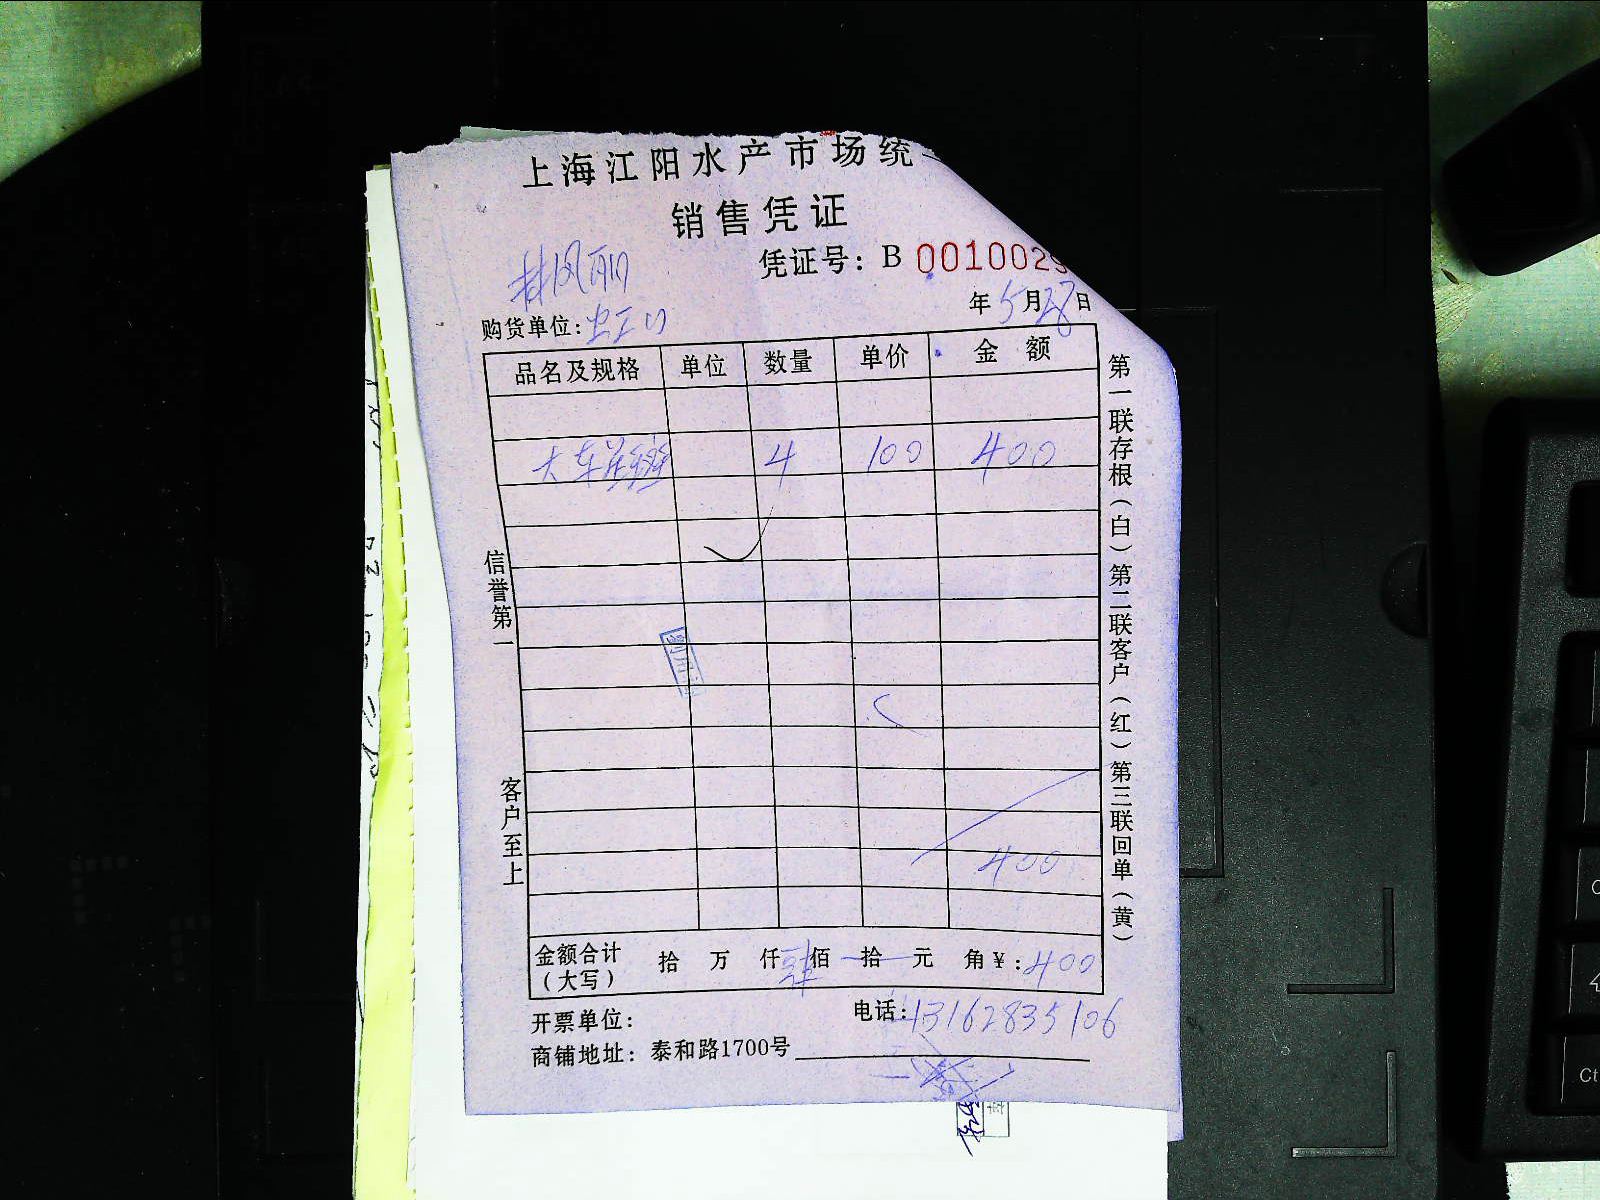 上海江阳水产市场统一
销售凭证
凭证号：B 0010029
年5月28日
购货单位：
品名及规格 单位 数量 单价 金额
大车 4 100 400
400
金额合计（大写） 拾 万 仟肆佰 拾 元 角￥：400
开票单位：
电话：13162835106
商铺地址：泰和路1700号
信誉第一
客户至上
第一联存根（白）第二联客户（红）第三联回单（黄）